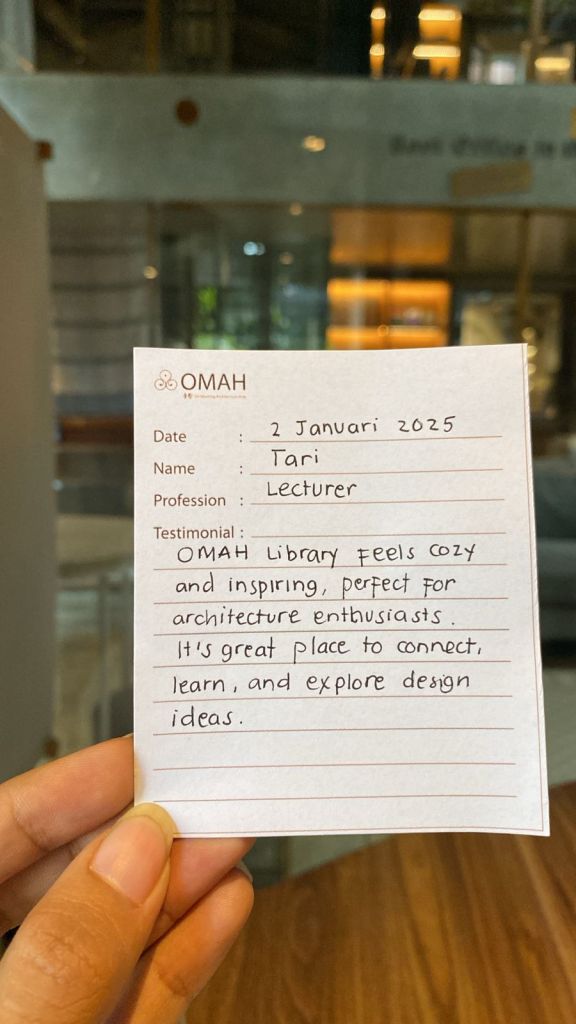 OMAH
Date : 2 Januari 2025
Name : Tari
Profession : Lecturer
Testimonial :
OMAH Library Feels cozy
and inspiring, perfect For
architecture enthusiasts.
It's great place to connect,
learn, and explore design
ideas.